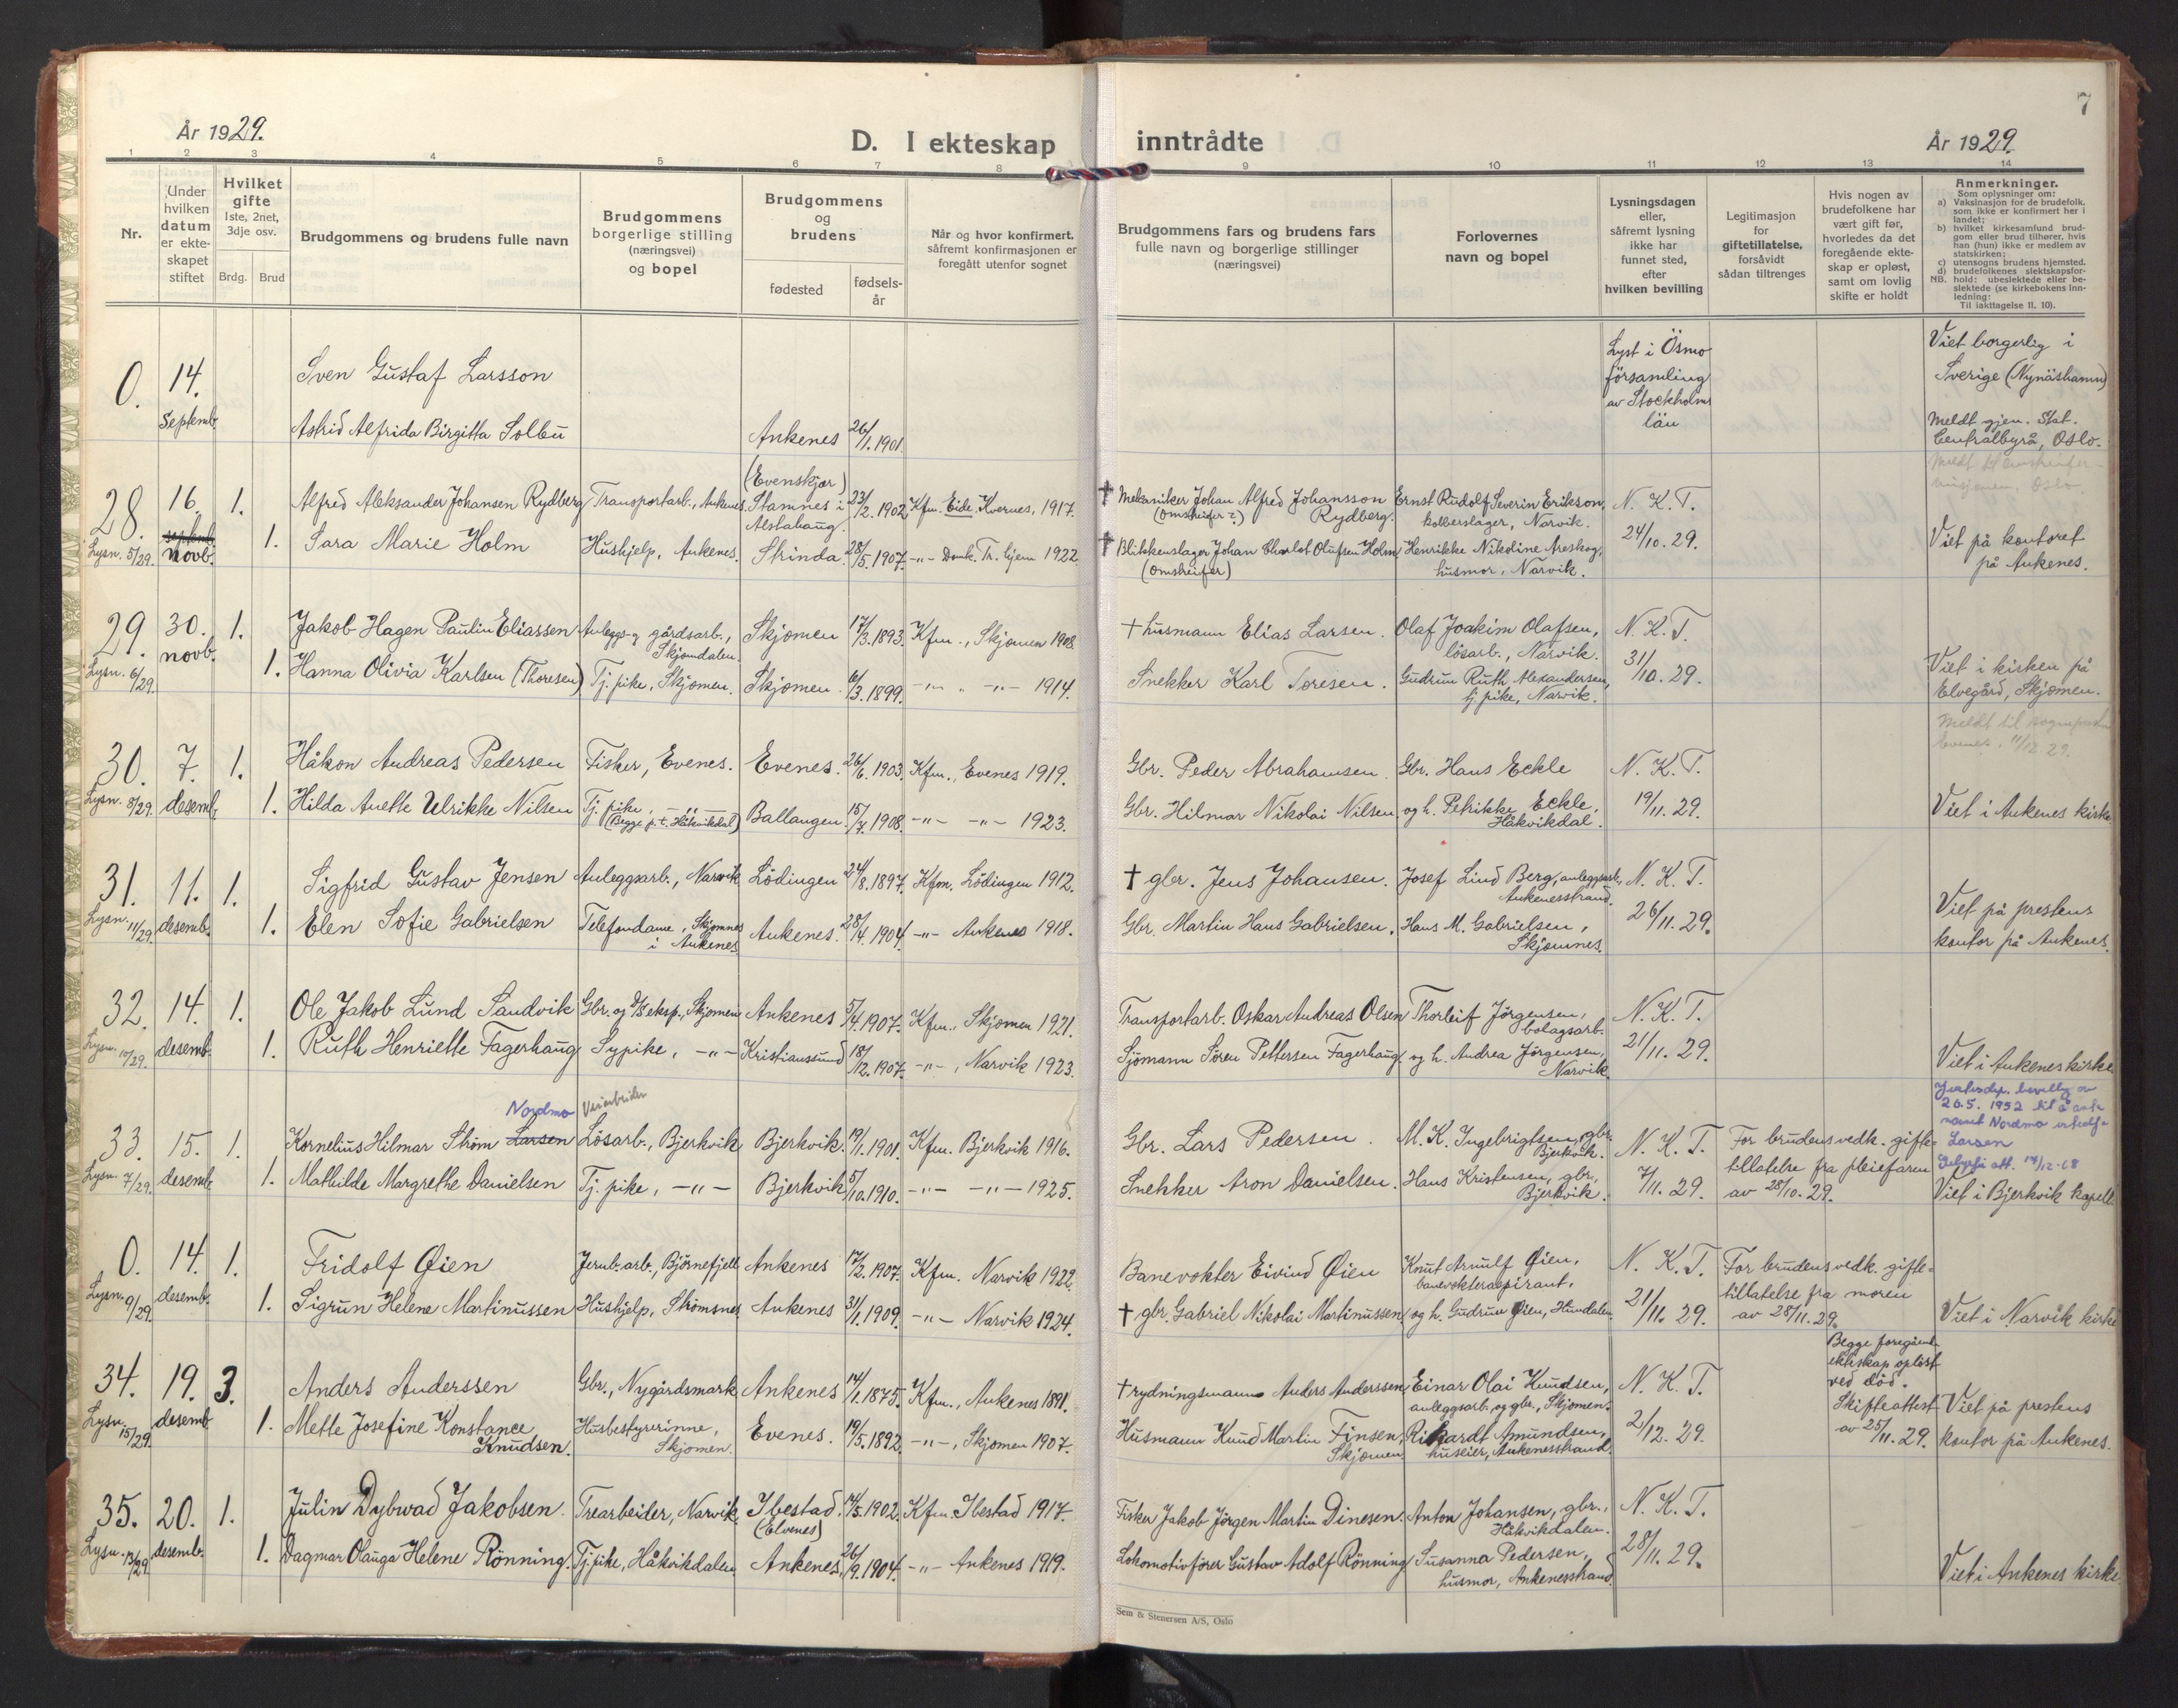 7
År 1929.
D. I ekteskap inntrådte
År 1929.
1 2 3 4 5 6 7 8 9 10 11 12 13 14
Nr.
Under
hvilken
datum
er ekte-
skapet
stiftet
Hvilket
gifte
1ste, 2net,
3dje osv.
Brdg. Brud
Brudgommens og brudens fulle navn
Brudgommens
borgerlige stilling
(næringsvei)
og bopel
Brudgommens
og
brudens
fødested
fødsels-
år
Når og hvor konfirmert,
såfremt konfirmasjonen er
foregått utenfor sognet
Brudgommens fars og brudens fars
fulle navn og borgerlige stillinger
(næringsvei)
Forlovernes
navn og bopel
Lysningsdagen
eller,
såfremt lysning
ikke har
funnet sted,
efter
hvilken bevilling
Legitimasjon
for
giftetillatelse,
forsåvidt
sådan tiltrenges
Hvis nogen av
brudefolkene har
vært gift før,
hvorledes da det
foregående ekte-
skap er opløst,
samt om lovlig
skifte er holdt
Anmerkninger.
Som oplysninger om:
a) Vaksinasjon for de brudefolk,
som ikke er konfirmert her i
landet;
b) hvilket kirkesamfund brud-
gom eller brud tilhører, hvis
han (hun) ikke er medlem av
statskirken;
c) utensogns brudens hjemsted.
d) brudefolkenes slektskapsfor-
NB. hold: ubeslektede eller be-
slektede (se kirkebokens inn-
ledning:
Til iakttagelse II, 10).
0. 14. Septemb.
Sven Gustaf Larsson
Lyst i Ösmo
församling
av Stockholms
län
Viet borgerlig i
Sverige (Nynäshamn)
Astrid Alfrida Birgitta Solbu
Ankenes 26/1. 1901.
Meldt gjen. Stat.
Centralbyrå, Oslo.
28. 16. septemb. novb. 1.
Lysn. 5/29.
Alfred Aleksander Johansen Rydberg
Transportarb., Ankenes.
(Evenskjær)
Stamnes i
Alstahaug.
23/2. 1902
Kfm. Eide. Kvernes, 1917.
† Mekaniker Johan Alfred Johansson
(Omstreifer?) Rydberg.
Ernst Rudolf Severin Erikson,
kobberslager, Narvik.
N. K. T.
24/10. 29.
1. Sara Marie Holm
Hushjelp, Ankenes.
Strinda. 28/5. 1907.
-"- Domk. Tr. hjem 1922
† Blikkenslager Johan Charlot Olufsen Holm
(Omstreifer)
Henrikke Nikoline Areskog,
husmor, Narvik.
Viet på kontoret
på Ankenes.
29. 30. novb. 1.
Lysn. 6/29.
Jakob Hagen Paulin Eliassen
Anleggs- og gårdsarb.,
Skjomdalen.
Skjomen 17/3. 1893.
Kfm., Skjomen 1908.
† husmann Elias Larsen.
Olaf Joakim Olafsen,
løsarb., Narvik.
N. K. T.
31/10. 29.
1. Hanna Olivia Karlsen (Thoresen)
Tj. pike, Skjomen.
Skjomen. 6/3. 1899.
-"- -"- 1914.
Snekker Karl Toresen.
Gudrun Ruth Alexandersen,
tj. pike, Narvik.
Viet i kirken på
Elvegård, Skjomen.
30. 7. desemb. 1.
Lysn. 8/29.
Håkon Andreas Pedersen
Fisker, Evenes.
Evenes. 26/6. 1903.
Kfm., Evenes 1919.
Gbr. Peder Abrahamsen.
Gbr. Hans Eckle
N. K. T.
19/11. 29.
1. Hilda Anette Ulrikke Nilsen
Tj. pike, -"-
(Begge p.t. Håkvikdal)
Ballangen 15/7. 1908.
-"- -"- 1923.
Gbr. Hilmar Nikolai Nilsen.
og h. Petrikke Eckle,
Håkvikdal.
Viet i Ankenes kirke
31. 11. desemb. 1.
Lysn. 11/29.
Sigfrid Gustav Jensen
Anleggsarb., Narvik
Lödingen 24/8. 1897.
Kfm. Lödingen 1912.
† gbr. Jens Johansen.
Josef Lind Berg, anleggsarb.,
Ankenesstrand.
N. K. T.
26/11. 29.
1. Elen Sofie Gabrielsen
Telefondame, Skjomnes
i Ankenes
Ankenes. 28/4. 1904.
-"- Ankenes 1918.
Gbr. Martin Hans Gabrielsen.
Hans M. Gabrielsen,
Skjomnes.
Viet på prestens
kontor på Ankenes.
32. 14. desemb. 1.
Lysn. 10/29.
Ole Jakob Lund Sandvik
Gbr. og D/S eksp., Skjomen
Ankenes 5/4. 1907.
Kfm., Skjomen 1921.
Transportarb. Oskar Andreas Olsen
Thorleif Jörgensen,
bolagsarb.
N. K. T.
21/11. 29.
1. Ruth Henriette Fagerhaug
Sypike, -"-
Kristiansund 18/12. 1907.
-"-, Narvik 1923.
Sjömann Sören Pettersen Fagerhaug
og h. Andrea Jörgensen,
Narvik.
Viet i Ankenes kirke
33. 15. desemb. 1.
Lysn. 7/29.
Nordmo
Kornelius Hilmar Ström Larsen
Lösarb., Bjerkvik
Bjerkvik. 19/1. 1901.
Kfm. Bjerkvik 1916.
Gbr. Lars Pedersen.
M. K. Ingebrigtsen, gbr.
Bjerkvik.
N. K. T.
7/11. 29.
For brudens vedk. gifte-
tillatelse fra pleiefaren
av 28/10. 29.
26.5. 1952
Larsen
1. Mathilde Margrethe Danielsen
Tj. pike, -"-
Bjerkvik 5/10. 1910.
-"- -"- 1925.
Snekker Aron Danielsen.
Hans Kristensen, gbr.,
Bjerkvik.
Viet i Bjerkvik kapell
0. 14. desemb. 1.
Lysn. 9/29.
Fridolf Øien
Jernb. arb., Björnefjell
Ankenes 17/2. 1907.
Kfm. Narvik 1922.
Banevokter Eivind Øien
Knut Arnulf Øien,
banevokteraspirant,
N. K. T.
21/11. 29.
For brudens vedk. gifte-
tillatelse fra moren
av 28/11. 29.
1. Sigrun Helene Martinussen
Hushjelp, Strömsnes
Ankenes 31/1. 1909.
-"- Narvik 1924.
† gbr. Gabriel Nikolai Martinussen
og h. Gudrun Øien, Hundalen
Viet i Narvik kirke
34. 19. desemb 3.
Lysn. 15/29.
Anders Anderssen
Gbr., Nygårdsmark
Ankenes 14/1. 1875.
Kfm., Ankenes 1891.
† rydningsmann Anders Anderssen
Einar Olai Knudsen,
anleggsarb. og gbr., Skjomen.
N. K. T.
2/12. 29.
Begge foregående
ekteskap oplöst
ved död.
Skifteattest
av 25/11. 29.
1. Mette Josefine Konstance
Knudsen.
Husbestyrerinne,
Skjomen.
Evenes. 19/5. 1892.
-"-, Skjomen 1907.
Husmann Knud Martin Finsen,
Skjomen
Rikhardt Amundsen,
huseier, Ankenesstrand.
Viet på prestens
kontor på Ankenes.
35. 20. desemb. 1.
Lysn. 13/29.
Julin Dybwad Jakobsen.
Trearbeider, Narvik.
Ibestad.
(Elvenes)
14/5. 1902.
Kfm. Ibestad 1917.
Fisker Jakob Jörgen Martin Dinesen.
Anton Johansen, gbr.,
Håkvikdalen.
N. K. T.
28/11. 29.
1. Dagmar Olauga Helene Rönning.
Tj. pike, Håkvikdalen
Ankenes. 26/9. 1904.
-"- Ankenes 1919.
Lokomotivförer Gustav Adolf Rönning
Susanna Pedersen,
husmor, Ankenesstrand.
Viet i Ankenes kirke
Sem & Stenersen A/S, Oslo